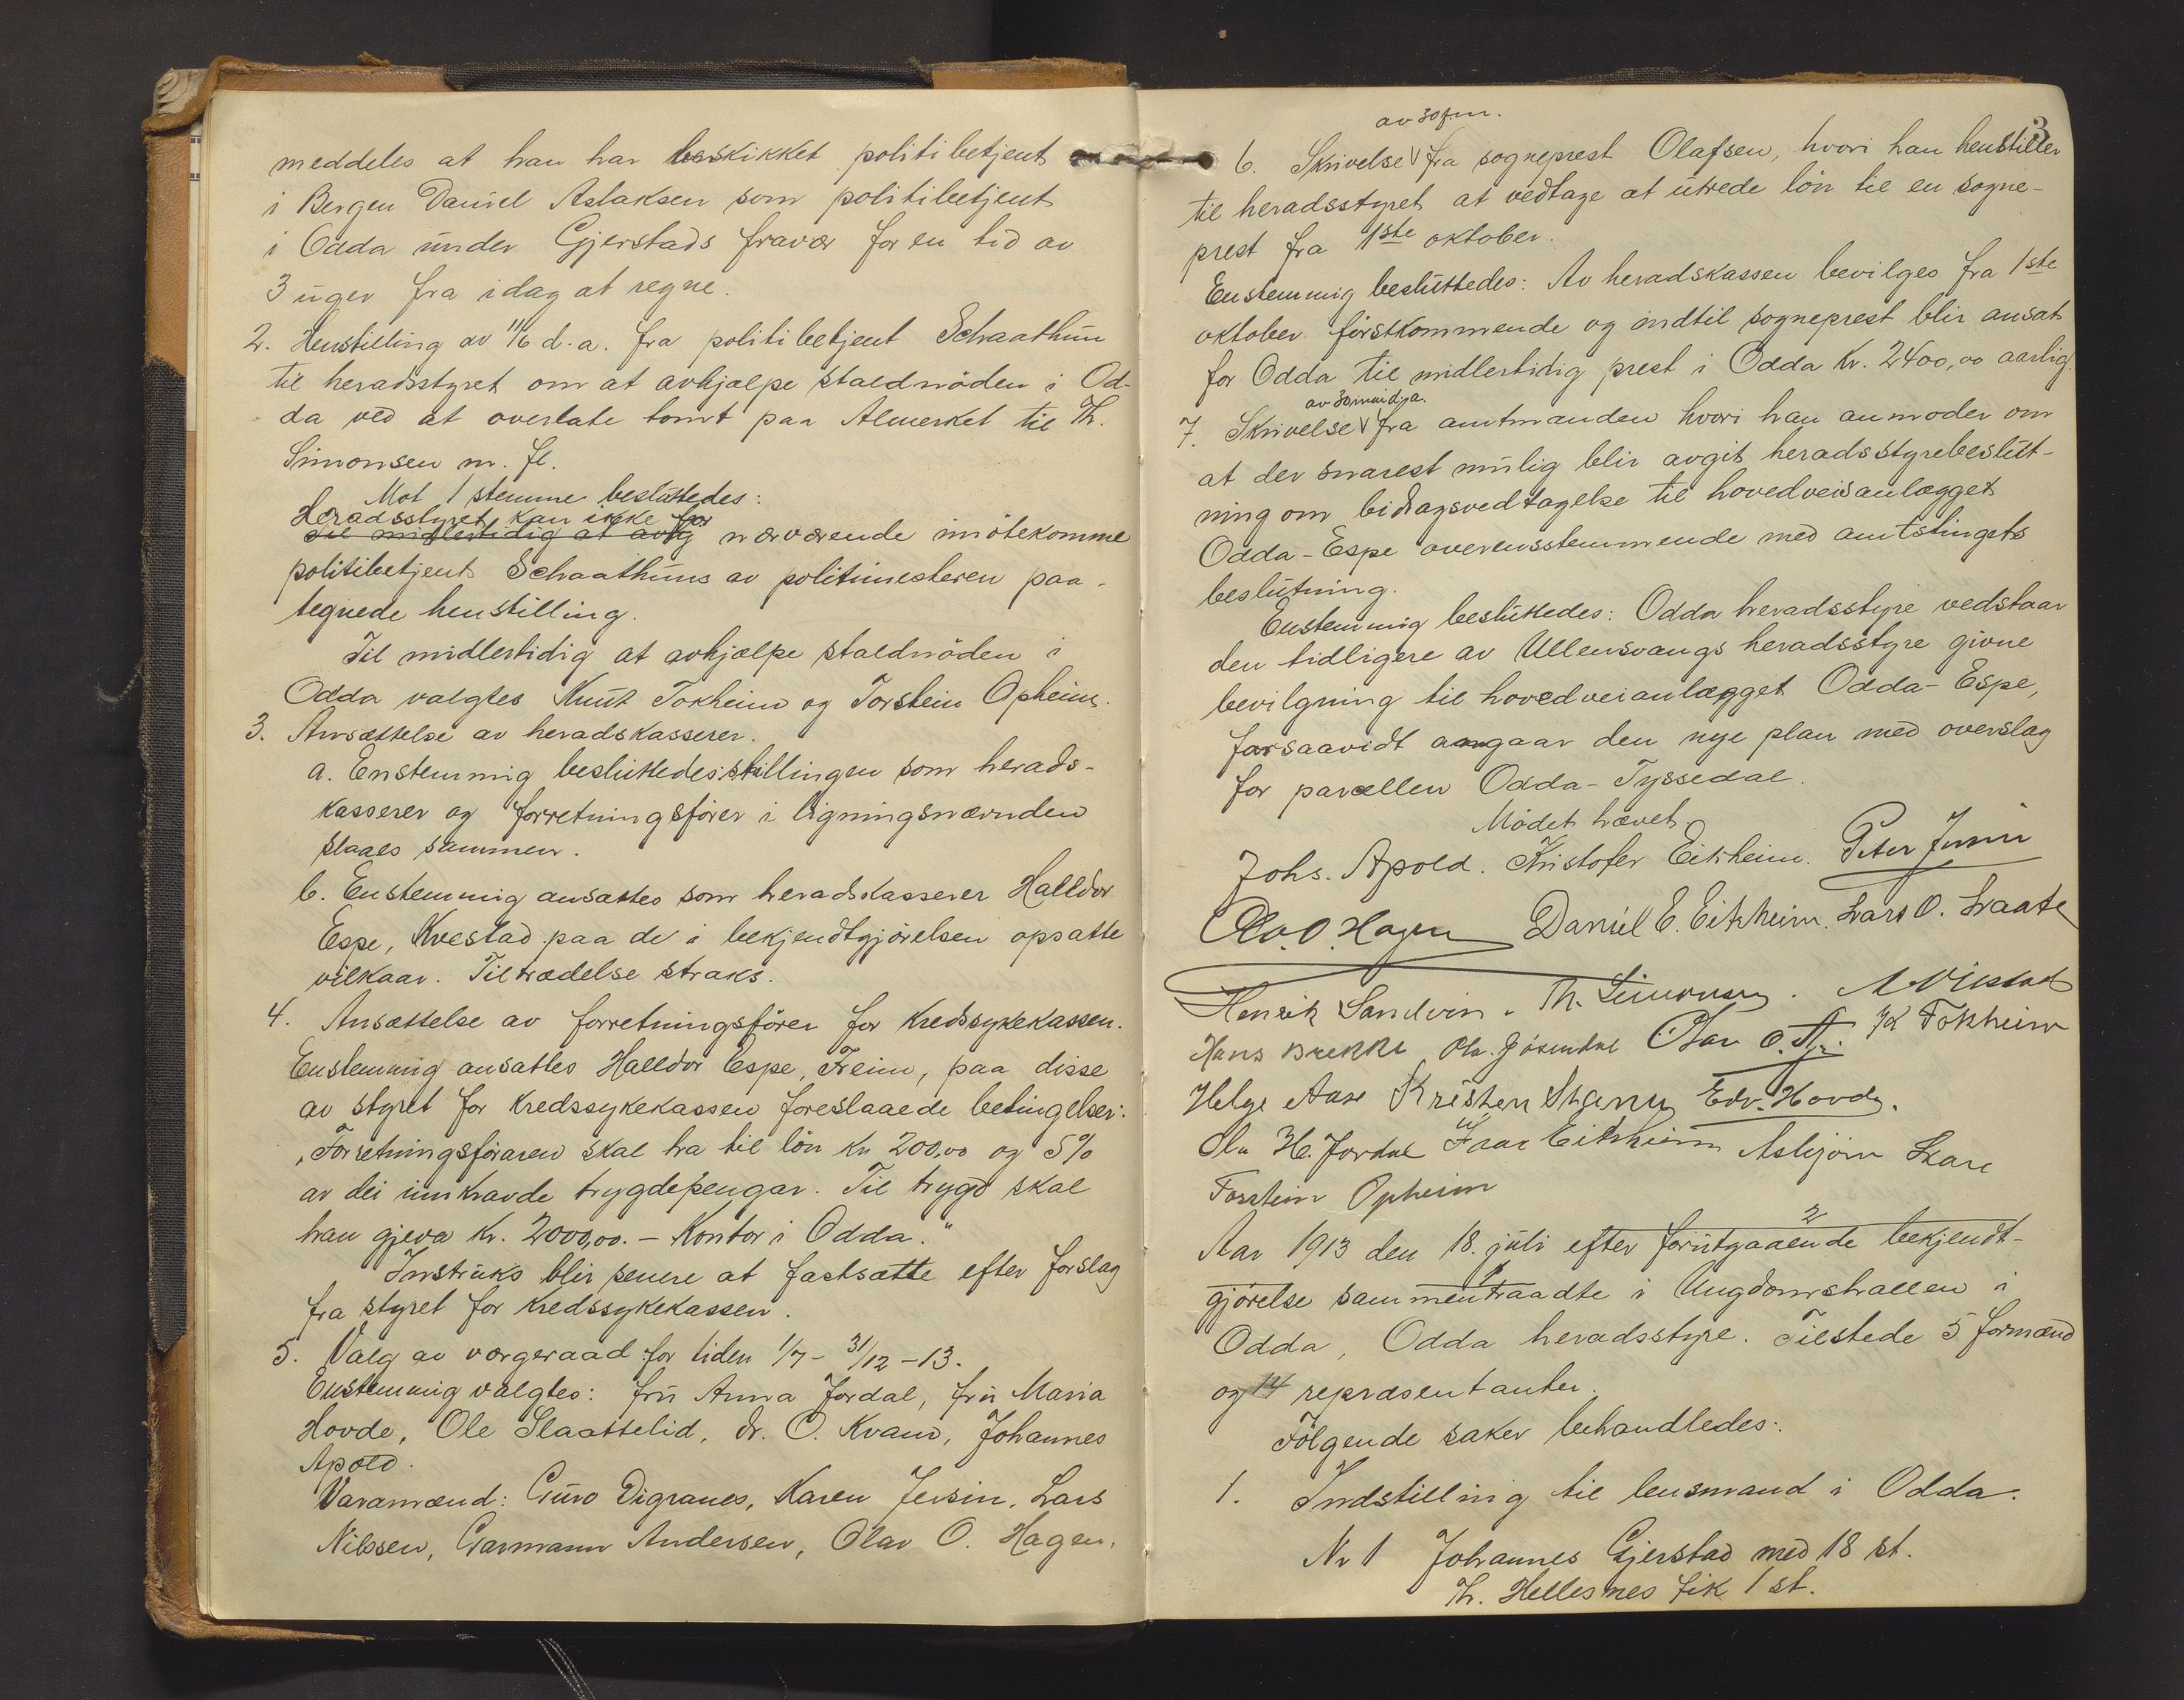 meddeles at han har beskikket politibetjent
i Bergen Daniel Aslaksen som politibetjent
i Odda under Gjerstads fravær for en tid av
3 uger fra idag at regne.
2. Henstilling av 11/6 d.a. fra politibetjent Schaathun
til heradsstyret om at avhjælpe staldnöden i Od-
da ved at overlate tomt paa Almerket til Th.
Simonsen m. fl.
Mot 1 stemme besluttedes:
Heradsstyret kan ikke for
Til midlertidig at avhj nærværende imötekomme
politibetjent Schaathuns av politimesteren paa-
tegnede henstilling.
Til midlertidig at avhjælpe staldnöden i
Odda valgtes Knut Tokheim og Torstein Opheim.
3. Ansættelse av heradskasserer.
a. Enstemmig besluttedes: stillingen som herads-
kasserer og forretningsförer i ligningsnævnden
slaaes sammen.
b. Enstemmig ansattes som heradskasserer Halldor
Espe, Kvestad paa de i bekjendtgjörelsen opsatte
vilkaar. Tiltrædelse straks.
4. Ansættelse av forretningsförer for Kredssykekassen.
Enstemmig ansattes Halldor Espe, Freim, paa disse
av styret for Kredssykekassen foreslaaede betingelser:
„Forretningsföraren skal ha til lön Kr 200,00 og 5%
av dei innkravde trygdepengar. Til trygd skal
han gjeva Kr. 2000,00. – Kontor i Odda."
Instruks blir senere at fastsætte efter forslag
fra styret for Kredssykekassen.
5. Valg av værgeraad for tiden 1/7 - 31/12 - 13.
Enstemmig valgtes: fru Anna Jordal, fru Maria
Hovde, Ole Slaattelid, dr. O. Kvam, Johannes
Apold.
Varamænd: Guro Digranes, Karen Jersin, Lars
Nilssen, Garmann Andersen, Olav O. Hagen.
3
av 30/m.
6. Skrivelse V fra sogneprest Olafsen, hvori han henstiller
til heradsstyret at vedtage at utrede lön til en sogne-
prest fra 1ste oktober.
Enstemmig besluttedes: Av heradskassen bevilges fra 1ste
oktober förstkommende og indtil sogneprest blir ansat
for Odda til midlertidig prest i Odda Kr. 2400,00 aarlig.
av 30 mai d.a.
7. Skrivelse V fra amtmanden hvori han anmoder om
at der snarest mulig blir avgit heradsstyrebeslut-
ning om bidragsvedtagelse til hovedveisanlægget
Odda - Espe overensstemmende med amtstingets
beslutning.
Enstemmig besluttedes: Odda heradsstyre vedstaar
den tidligere av Ullensvangs heradsstyre givne
bevilgning til hovedveianlægget Odda - Espe,
forsaavidt angaar den nye plan med overslag
for parcellen Odda - Tyssedal.
Mödet hævet.
Johs. Apold. Kristofer Eitrheim. Peter Jersin
Olav O. Hagen Daniel E. Eitrheim. Lars O. Laate
Henrik Sandvin. Th. Simonsen.
Hans Brekke Olav O. K Tokheim
Helge Aase Kristen Edv. Hovde.
Ola H. Jordal Ivar Eitrheim Asbjörn Skare
Torstein Opheim
2
Aar 1913 den 18. juli efter forutgaaende bekjendt-
gjörelse sammentraadte i Ungdomshallen i
Odda, Odda heradsstyre. Tilstede 5 formænd
og 14 repræsentanter.
Fölgende saker behandledes:
1. Indstilling til lensmand i Odda.
Nr 1 Johannes Gjerstad med 18 st.
Th. Hellesnes fik 1 st.